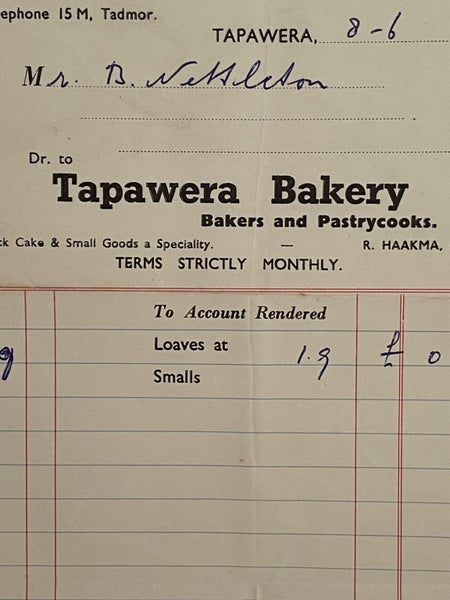 ephone 15 M, Tadmor.
TAPAWERA, 8-6
Mr. B. Nettleton
Dr. to
Tapawera Bakery
Bakers and Pastrycooks.
ck Cake & Small Goods a Speciality. — R. HAAKMA,
TERMS STRICTLY MONTHLY.
To Account Rendered
9 Loaves at 1.9 £ 0
Smalls